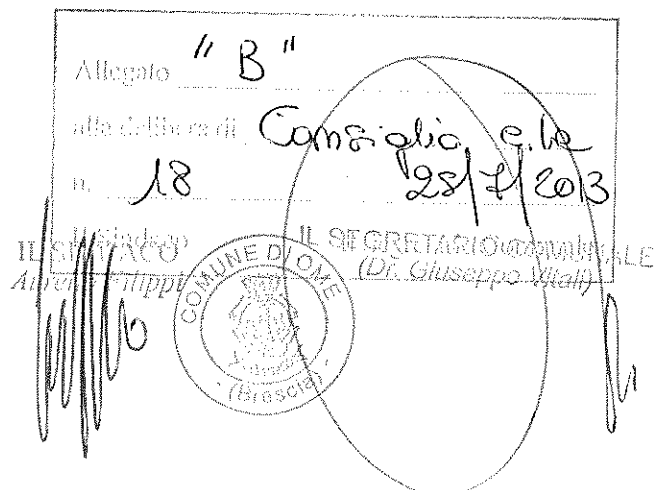 Allegato "B"
alla delibera di Consiglio c.le
n. 18 28/7/2013
Il Sindaco
IL SINDACO IL SEGRETARIO COMUNALE
Filippi (Dr. Giuseppe Vitali)
COMUNE DI OME
(Brescia)